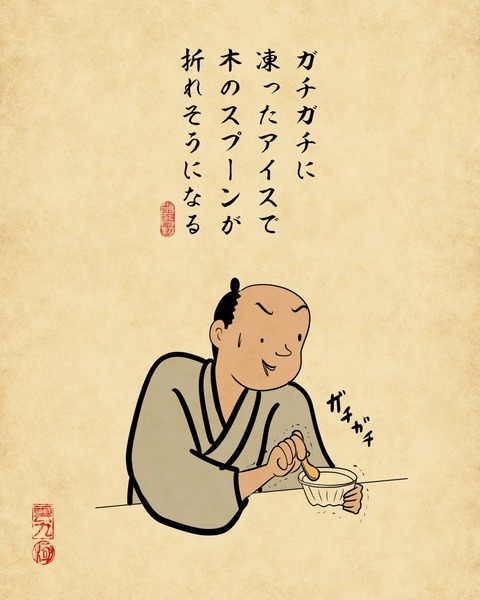 ガチガチに
凍ったアイスで
木のスプーンが
折れそうになる
ガチガチ